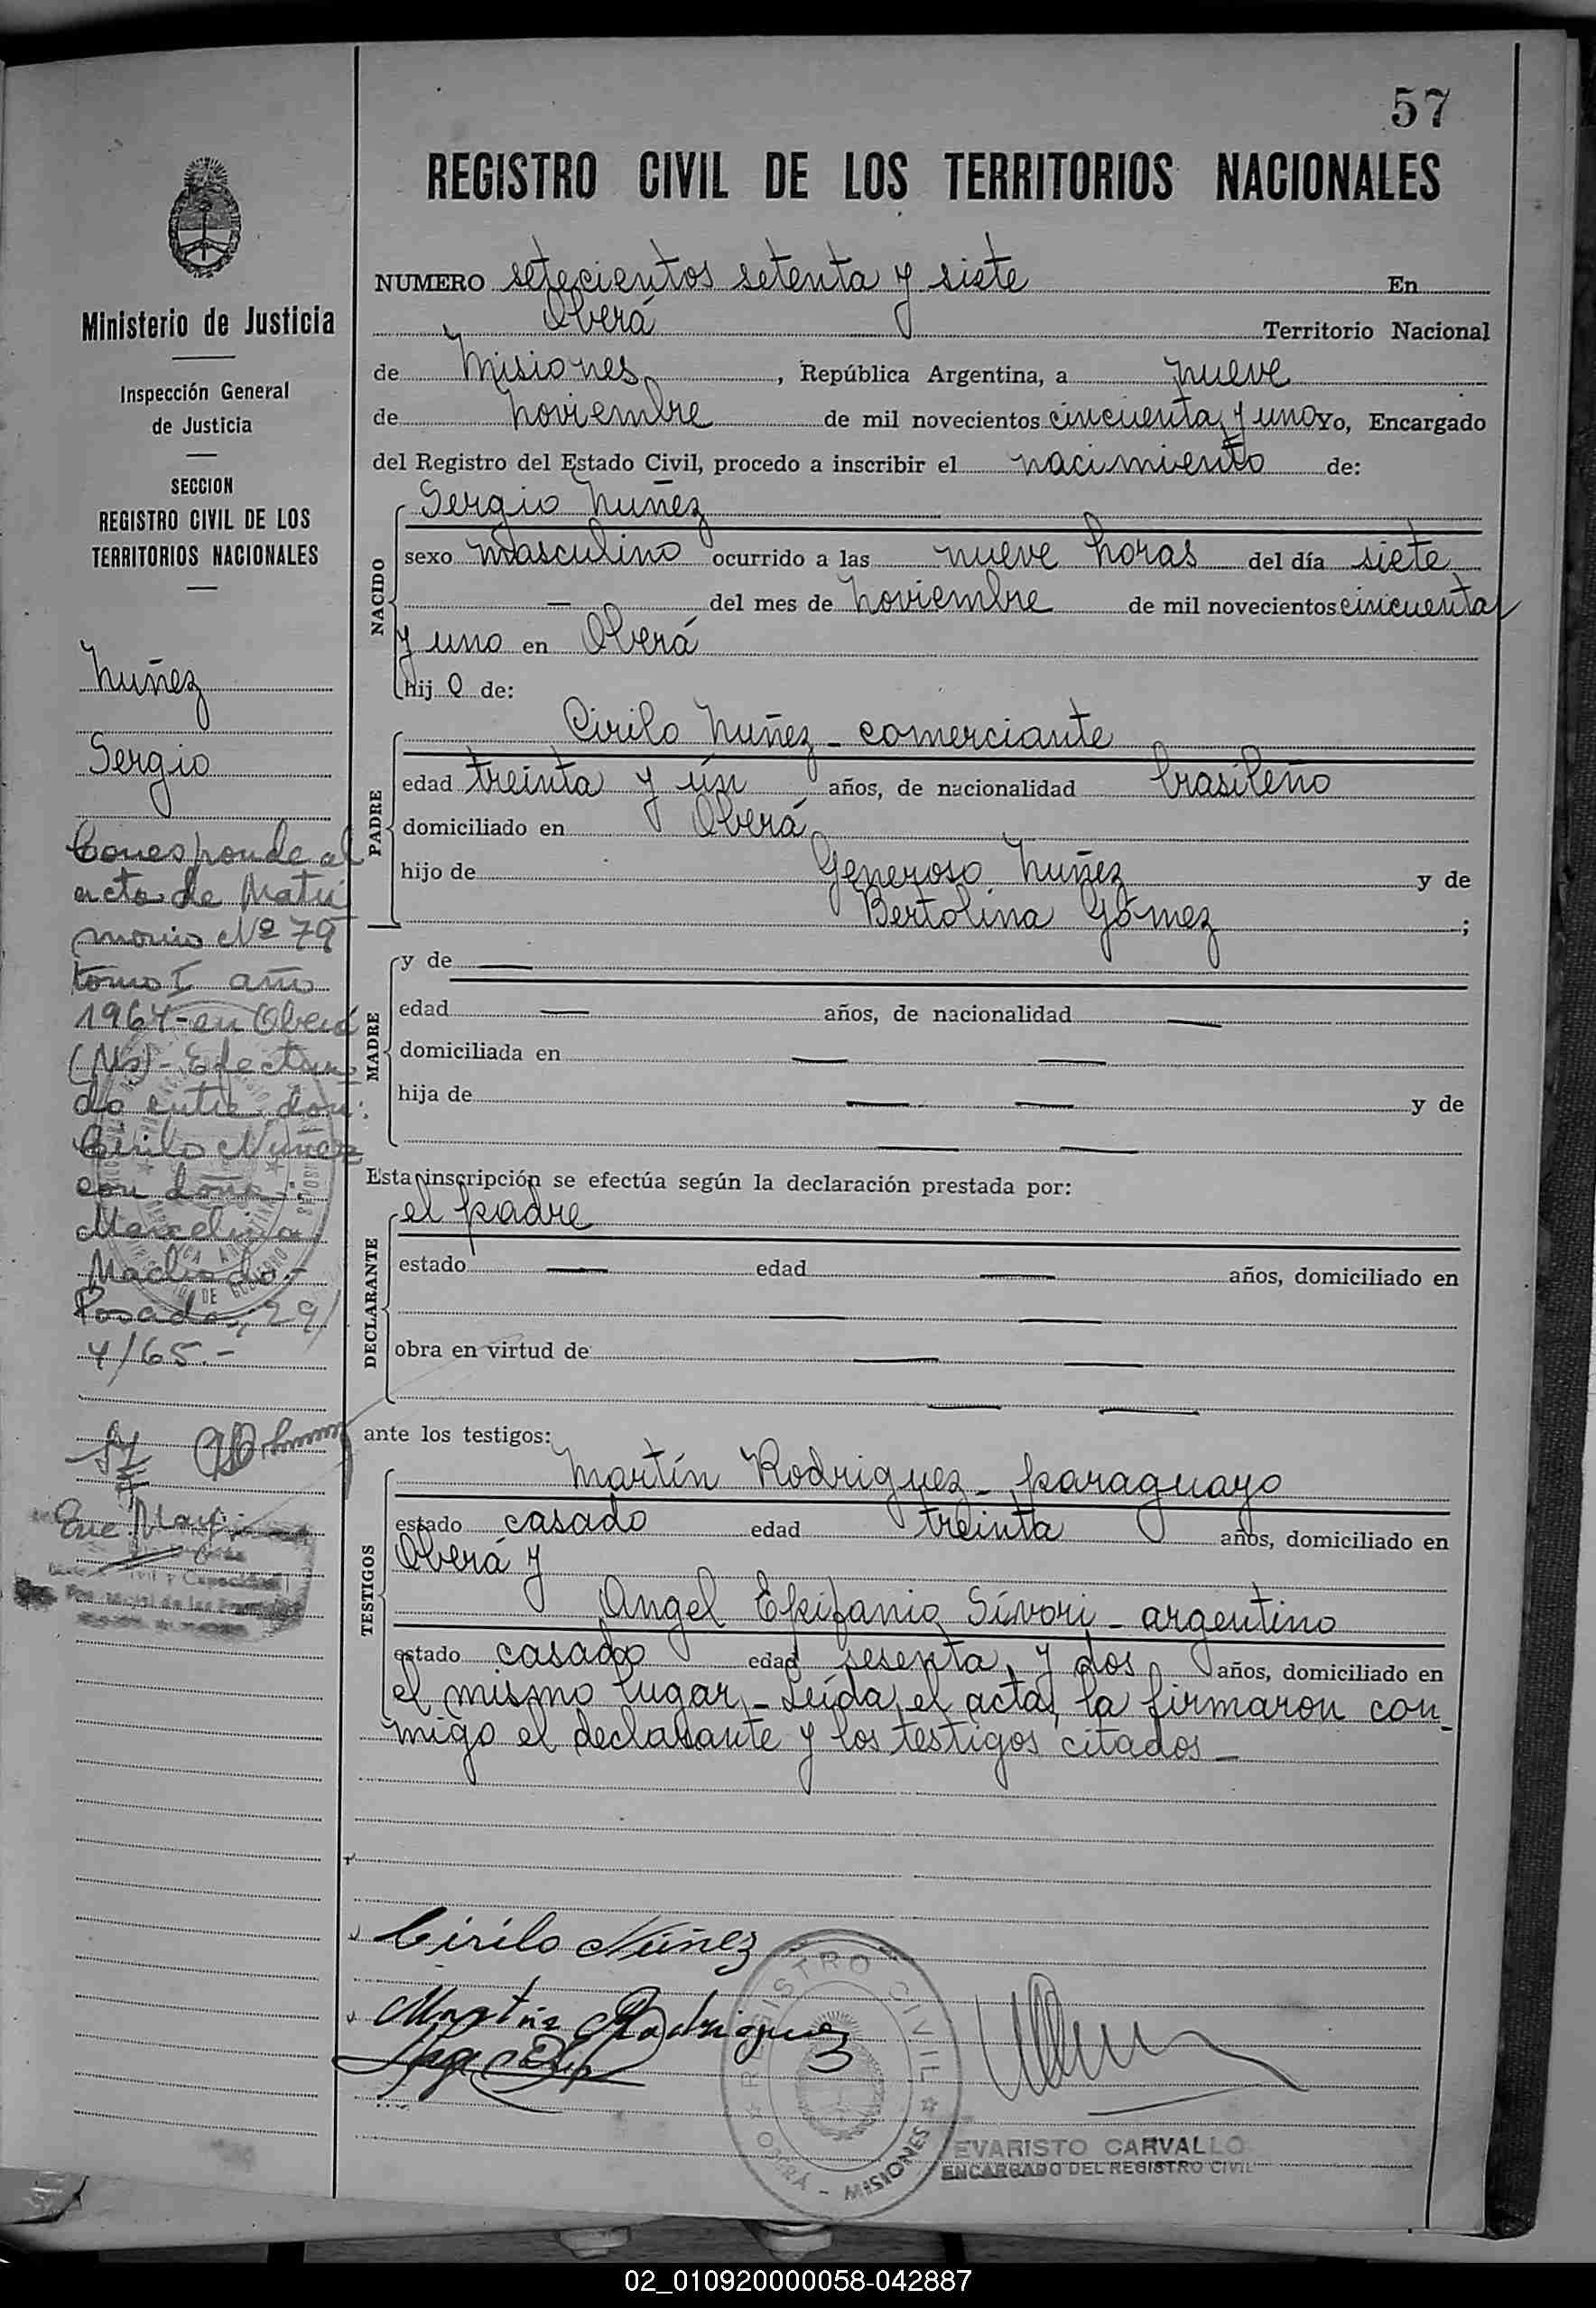 57
REGISTRO CIVIL DE LOS TERRITORIOS NACIONALES
Ministerio de Justicia
Inspección General
de Justicia
SECCION
REGISTRO CIVIL DE LOS
TERRITORIOS NACIONALES
Nuñez
Sergio
Corresponde al
acta de Matri
monio Nº 79
tomo I año
1964 - en Oberá
(Ms) - Efectua
do entre don:
Cirilo Nuñez
con doña:
Marcelina
Machado.-
Posadas, 29/
4/65.-
NUMERO setecientos setenta y siete En
Oberá Territorio Nacional
de Misiones, República Argentina, a nueve
de Noviembre de mil novecientos cincuenta y uno Yo, Encargado
del Registro del Estado Civil, procedo a inscribir el nacimiento de:
NACIDO
Sergio Nuñez
sexo masculino ocurrido a las nueve horas del día siete
— del mes de Noviembre de mil novecientos cincuenta
y uno en Oberá
hij o de:
PADRE
Cirilo Nuñez - comerciante
edad treinta y ún años, de nacionalidad brasileño
domiciliado en Oberá
hijo de Generoso Nuñez y de
Bertolina Gómez ;
MADRE
y de —
edad — años, de nacionalidad —
domiciliada en — —
hija de — — y de
— —
Esta inscripción se efectúa según la declaración prestada por:
DECLARANTE
el padre
estado — edad — años, domiciliado en
— —
obra en virtud de — —
— —
ante los testigos:
TESTIGOS
Martín Rodriguez - paraguayo
estado casado edad treinta años, domiciliado en
Oberá y
Angel Epifanio Sívori - argentino
estado casado edad sesenta y dos años, domiciliado en
el mismo lugar - Leída el acta, la firmaron con-
migo el declarante y los testigos citados -
Cirilo Núñez
Martin Rodriguez
REGISTRO CIVIL
OBERÁ - MISIONES
EVARISTO CARVALLO
ENCARGADO DEL REGISTRO CIVIL
02_010920000058-042887